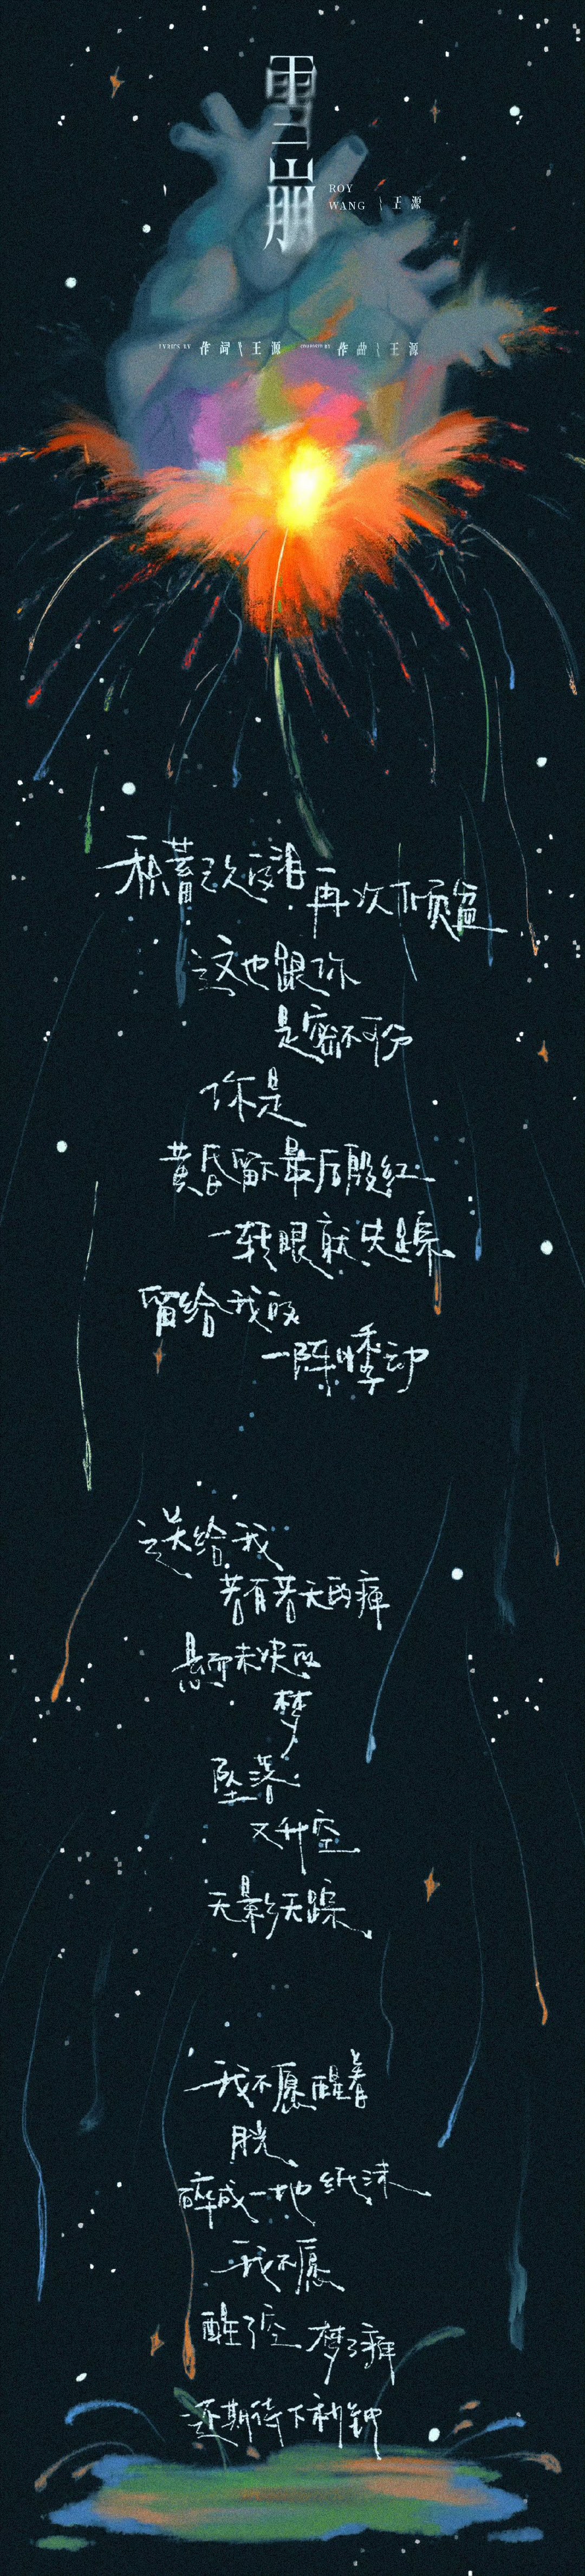 雪崩
ROY
WANG \ 王源
LYRICS BY 作词 \ 王源 COMPOSED BY 作曲 \ 王源
积蓄已久的泪
再次倾盆
这也跟你
是密不可分
你是
黄昏留下最后殷红
一转眼就失踪
留给我的
一阵悸动
送给我
若有若无的痛
悬而未决的
梦
坠落
又升空
无影无踪
我不愿醒着
月光
碎成一地纸沫
我不愿
醒了空 梦了痛
还期待下秒钟